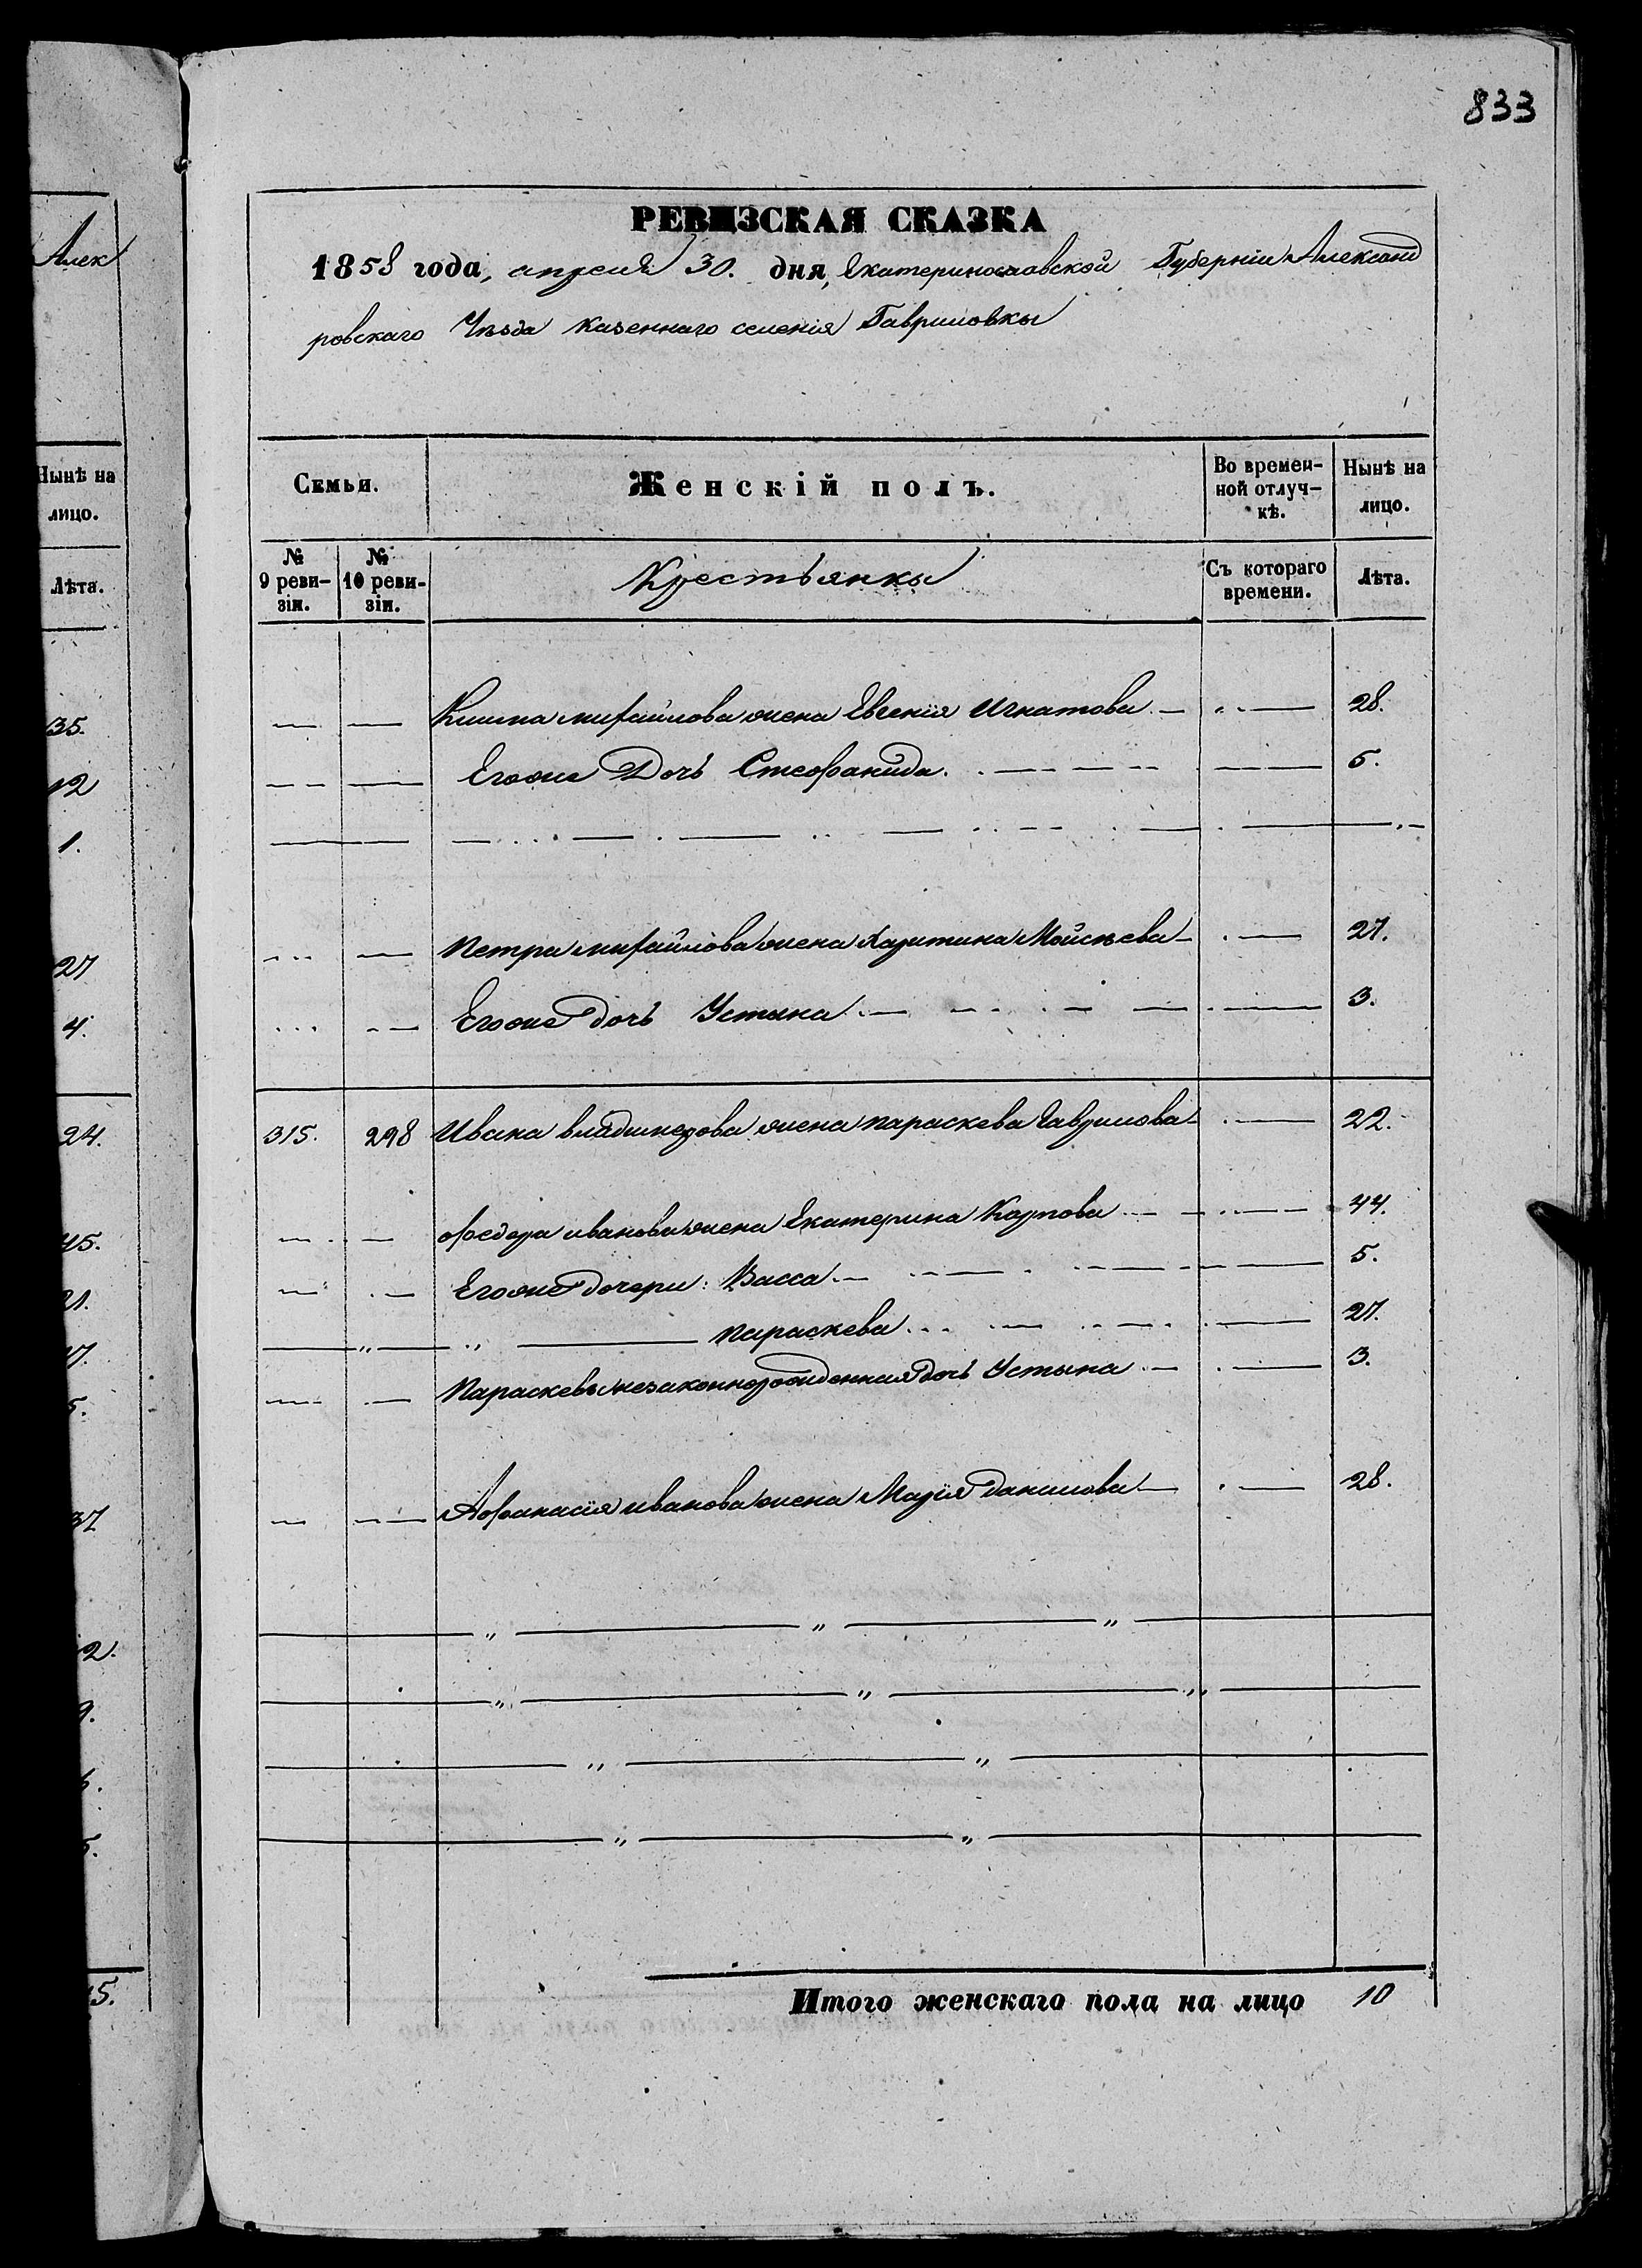 833
РЕВИЗСКАЯ СКАЗКА
1858 года, апреля 30. дня, Екатеринославской Губерніи Александ
ровскаго Уѣзда казеннаго селенія Гавриловки
Семьи. Женскій полъ. Во времен- Нынѣ на
ной отлуч- лицо.
кѣ.
№ № Крестьянки Съ котораго Лѣта.
9 реви- 10 реви- времени.
зіи. зіи.
Клима михайлова жена Евгенія Игнатова 28.
Егоже Дочь Стефанида. 5.
Петра михайлова жена Харитина Мойсѣева 27.
Егоже дочь Устина 3.
315. 298 Ивана владимерова жена параскева Гаврилова 22.
Федора иванова жена Екатерина Карпова 44.
Егоже дочери: Васса 5.
параскева 27.
Параскевы незаконнорожденная дочь Устина 3.
Афанасія иванова жена Марія данилова 28.
Итого женскаго пола на лицо 10
Алек
Нынѣ на
лицо.
Лѣта.
35.
12
1.
27
4.
24.
45.
21.
17.
5.
37